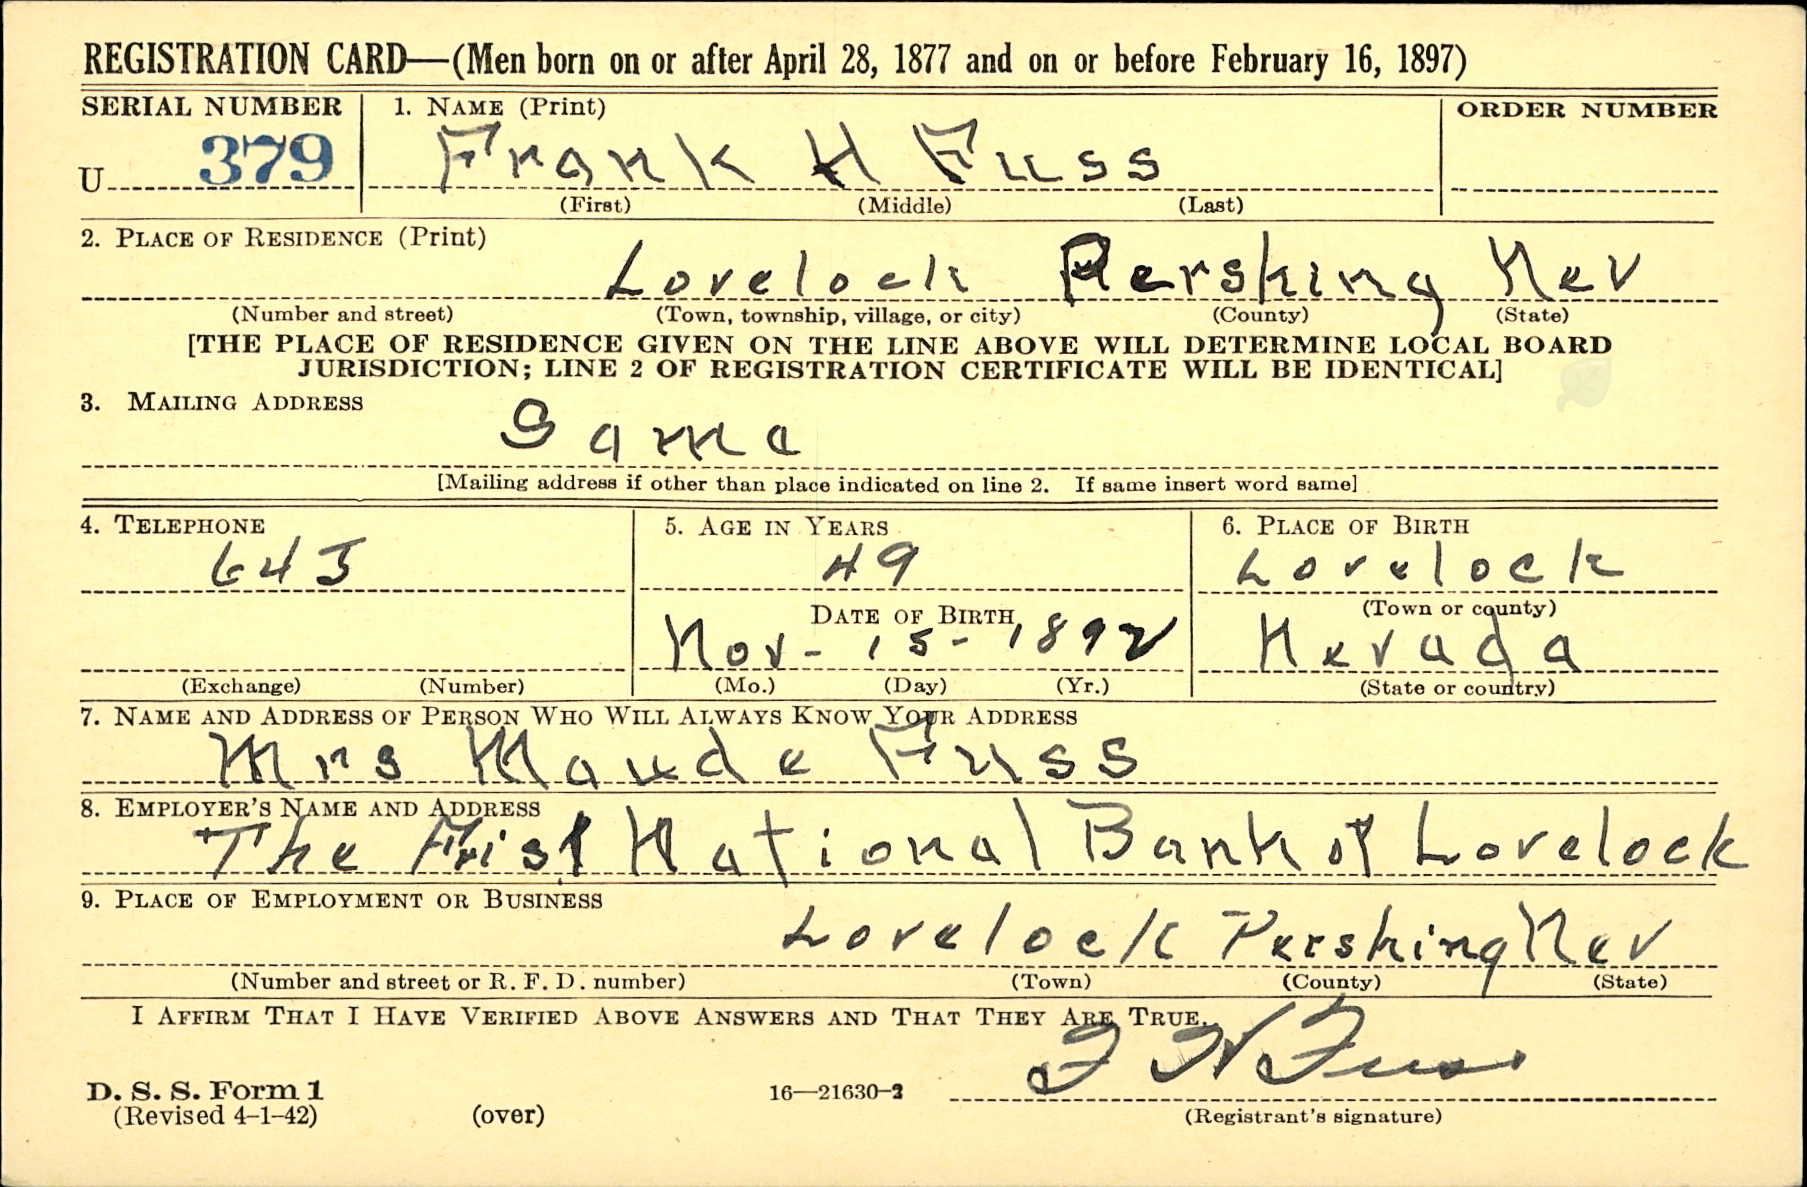 REGISTRATION CARD—(Men born on or after April 28, 1877 and on or before February 16, 1897)
SERIAL NUMBER 1. NAME (Print) ORDER NUMBER
U 379 Frank H Fuss
(First) (Middle) (Last)
2. PLACE OF RESIDENCE (Print)
Lovelock Pershing Nev
(Number and street) (Town, township, village, or city) (County) (State)
[THE PLACE OF RESIDENCE GIVEN ON THE LINE ABOVE WILL DETERMINE LOCAL BOARD
JURISDICTION; LINE 2 OF REGISTRATION CERTIFICATE WILL BE IDENTICAL]
3. MAILING ADDRESS
Same
[Mailing address if other than place indicated on line 2. If same insert word same]
4. TELEPHONE 5. AGE IN YEARS 6. PLACE OF BIRTH
64J 49 Lovelock
DATE OF BIRTH (Town or county)
Nov - 15 - 1892 Nevada
(Exchange) (Number) (Mo.) (Day) (Yr.) (State or country)
7. NAME AND ADDRESS OF PERSON WHO WILL ALWAYS KNOW YOUR ADDRESS
Mrs Maude Fuss
8. EMPLOYER'S NAME AND ADDRESS
The First National Bank of Lovelock
9. PLACE OF EMPLOYMENT OR BUSINESS
Lovelock Pershing Nev
(Number and street or R. F. D. number) (Town) (County) (State)
I AFFIRM THAT I HAVE VERIFIED ABOVE ANSWERS AND THAT THEY ARE TRUE.
F H Fuss
D. S. S. Form 1 16—21630-2
(Revised 4-1-42) (over) (Registrant's signature)